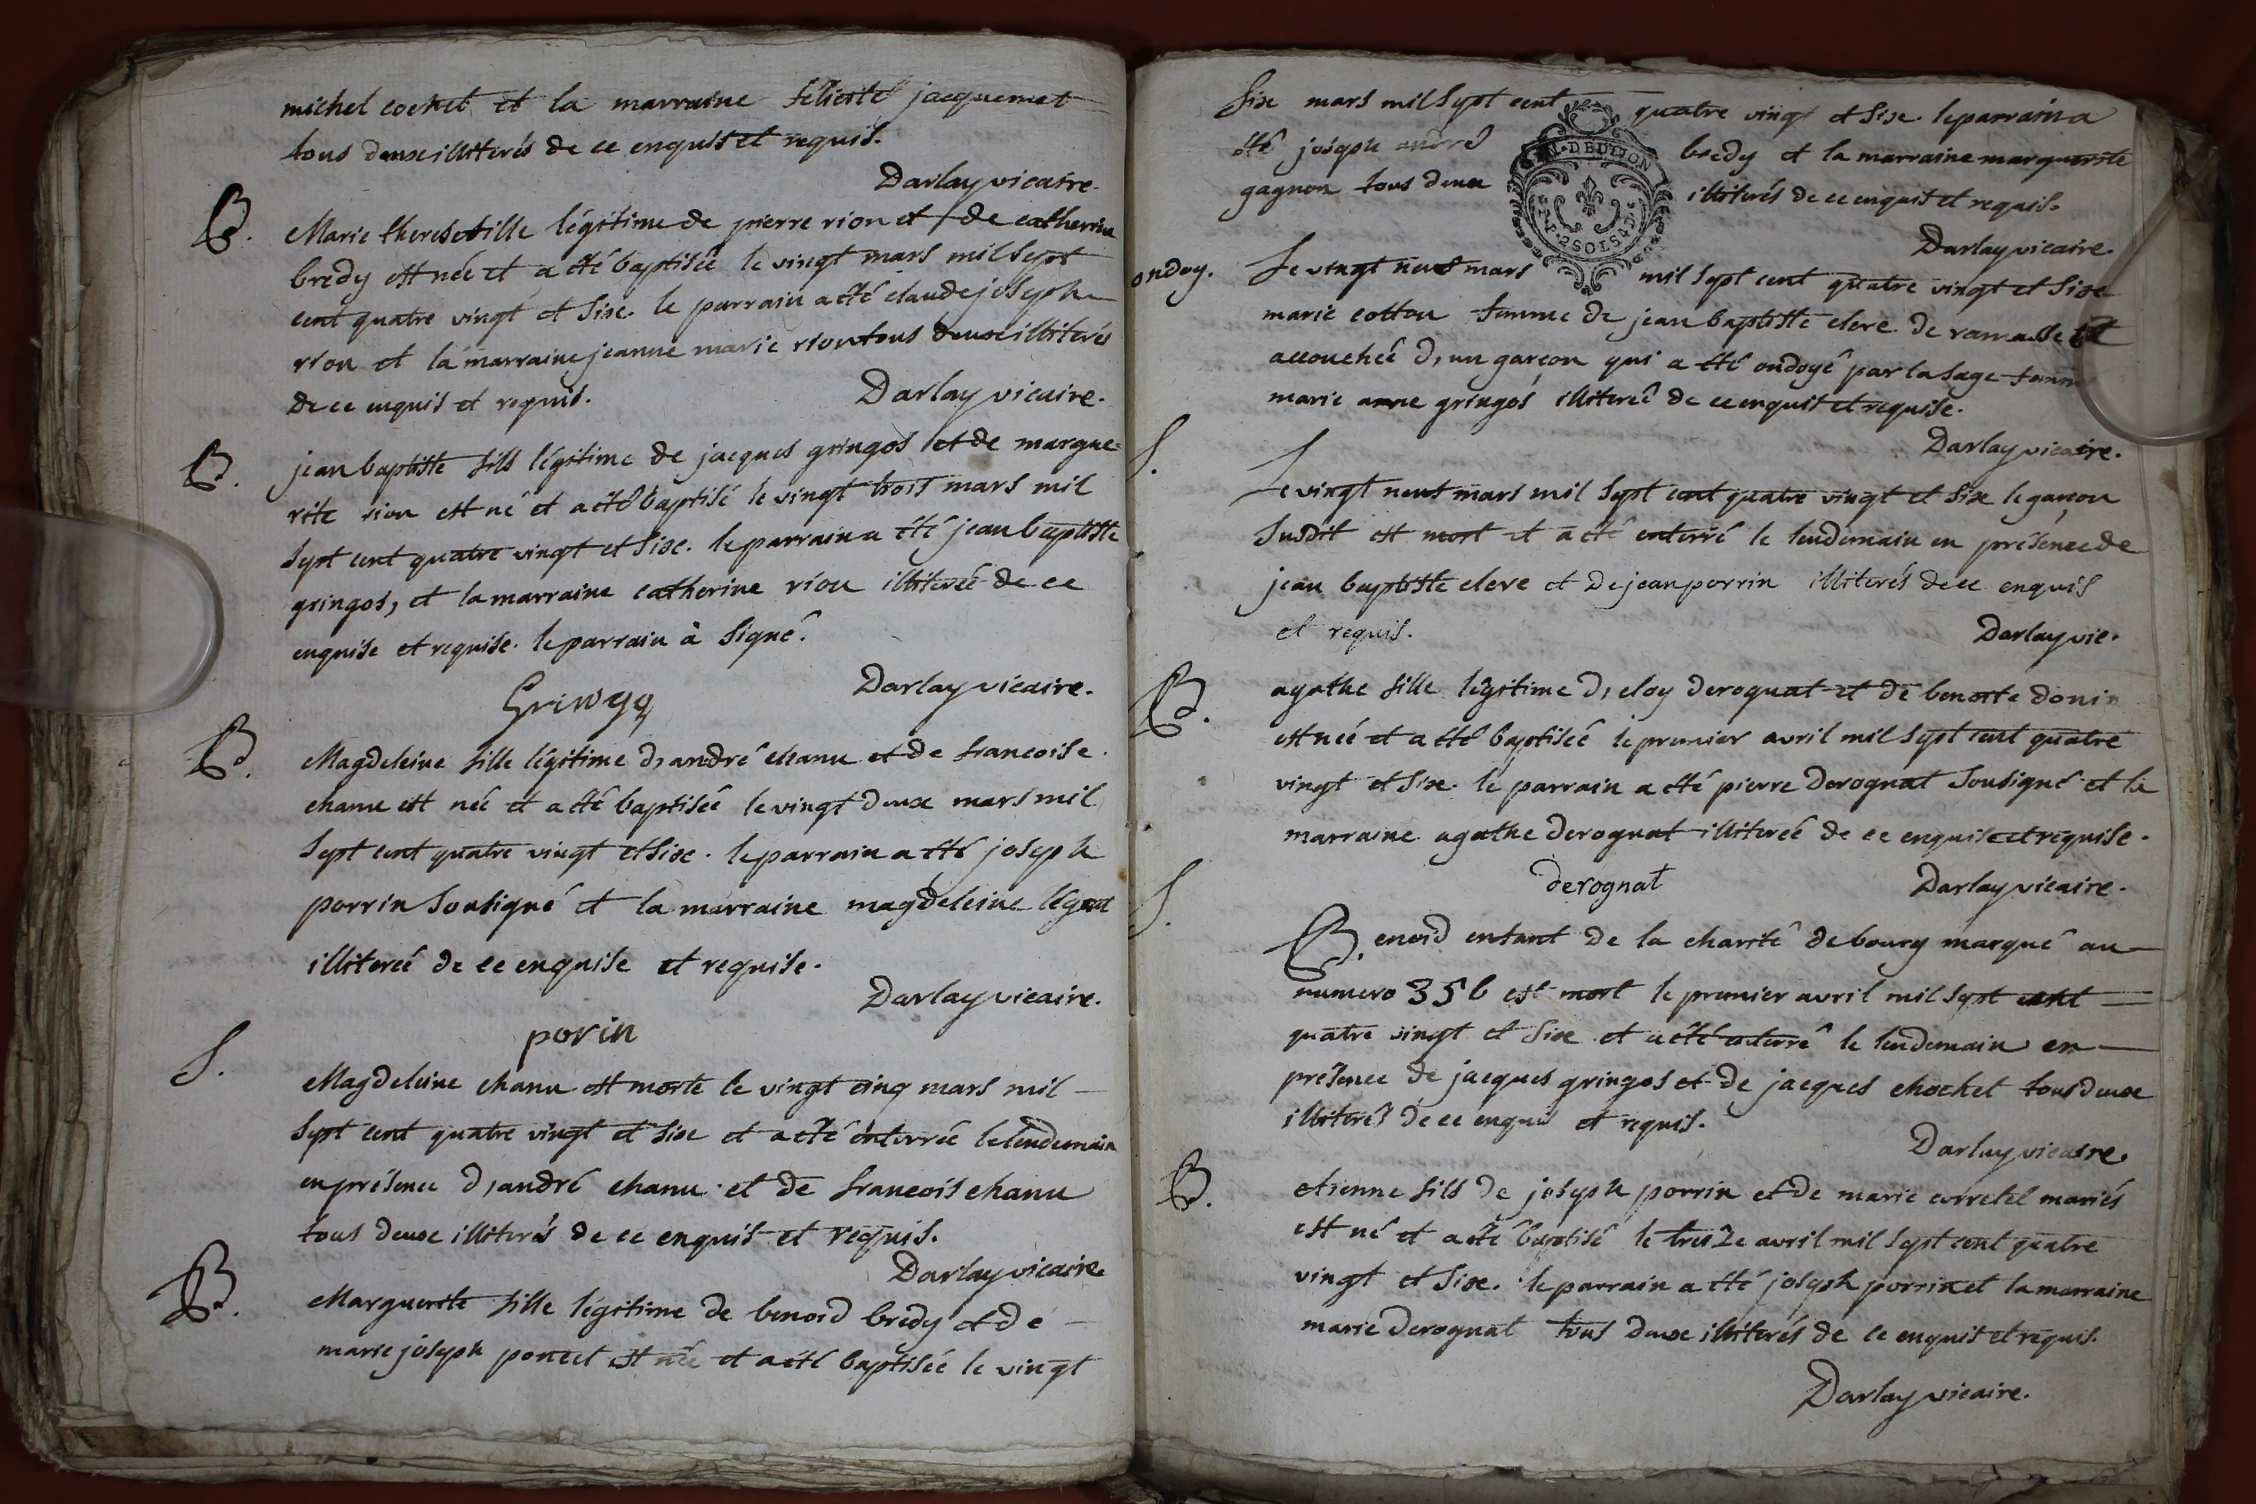 michel cochet et la marraine félicité jacquemet
tous deux illiterés de ce enquis et requis.
Darlay vicaire.
B. Marie therese fille légitime de pierre rion et de catherine
bredy est née et a été baptisée le vingt mars mil sept
cent quatre vingt et six. le parrain a été claude joseph
rion et la marraine jeanne marie rion tous deux illiterés
de ce enquis et requis. Darlay vicaire.
B. jean baptiste fils légitime de jacques gringos et de margue=
rite rion est né et a été baptisé le vingt trois mars mil
sept cent quatre vingt et six. le parrain a été jean baptiste
gringos, et la marraine catherine rion illiterée de ce
enquise et requise. le parrain à signé.
Darlay vicaire.
Gringg
B. Magdeleine fille légitime d, andré chanu et de francoise
chanu est née et a été baptisée le vingt deux mars mil
sept cent quatre vingt et six. le parrain a été joseph
porrin sousigné et la marraine magdeleine
illiterée de ce enquise et requise.
Darlay vicaire.
porin
S. Magdeleine chanu est morte le vingt cinq mars mil
sept cent quatre vingt et six et a été enterrée le lendemain
en présence d, andré chanu et de francois chanu
tous deux illiterés de ce enquis et requis.
Darlay vicaire
B. Marguerite fille légitime de benoid bredy et de
marie joseph poncet est née et a été baptisée le vingt
six mars mil sept cent quatre vingt et six. le parrain a
été joseph andré bredy et la marraine marguerite
gagnon tous deux illiterés de ce enquis et requis.
G. DE DIJON
2 SOLS 4 D.
Darlay vicaire.
ondoy. Le vingt neuf mars mil sept cent quatre vingt et six
marie cotton femme de jean baptiste clere de ramasse
accouchée d, un garçon qui a été ondoyé par la sage femme
marie anne gringos illiterée de ce enquise et requise.
Darlay vicaire.
S. Le vingt neuf mars mil sept cent quatre vingt et six le garçon
susdit est mort et a été enterré le lendemain en présence de
jean baptiste clere et de jean porrin illiterés de ce enquis
et requis. Darlay vic.
B. agathe fille légitime d, eloy derognat et de benoite donin
est née et a été baptisée le premier avril mil sept cent quatre
vingt et six. le parrain a été pierre derognat sousigné et la
marraine agathe derognat illiterée de ce enquise et requise.
derognat Darlay vicaire.
S. Benoid enfant de la charité de bourg marqué au
numero 356 est mort le premier avril mil sept cent
quatre vingt et six et a été enterré le lendemain en
présence de jacques gringos et de jacques chochet tous deux
illiterés de ce enquis et requis.
Darlay vicaire.
B. etienne fils de joseph porrin et de marie corretel mariés
est né et a été baptisé le treize avril mil sept cent quatre
vingt et six. le parrain a été joseph porrin et la marraine
marie derognat tous deux illiterés de ce enquis et requis.
Darlay vicaire.